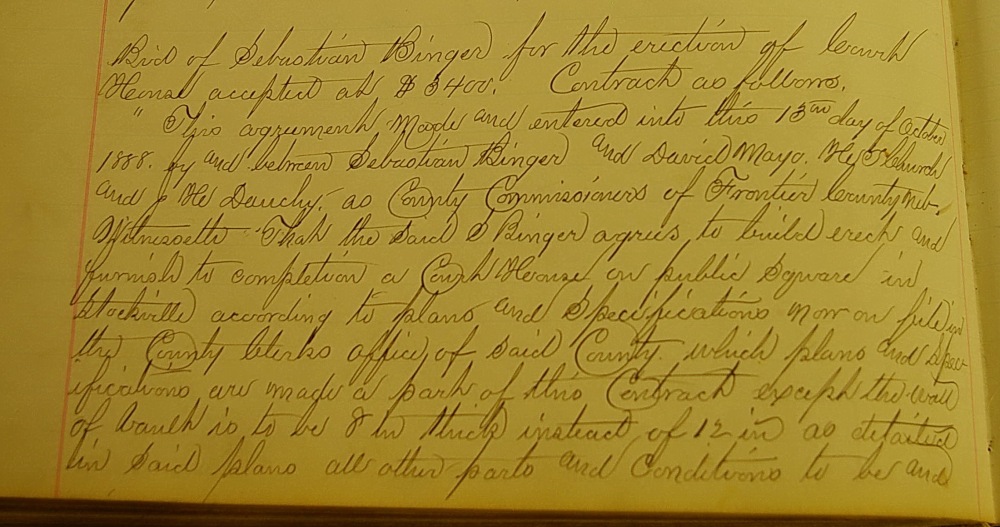 Bid of Sebastian Binger for the erection of Court
House accepted at $3400. Contract as follows.
"This agreement Made and entered into this 13th day of October
1888. by and between Sebastian Binger and David Mayo. Church
and J H Dauchy, as County Commissioners of Frontier County Neb.
Witnesseth "That the Said S Binger agrees to build erect and
furnish to completion a Court House on public Square in
Stockville according to plans and Specifications now on file in
the County Clerks office, of said County. which plans and Spec-
ifications are made a part of this Contract except the wall
of vault is to be 8 in thick instead of 12 in as detailed
in Said plans all other parts and Conditions to be and